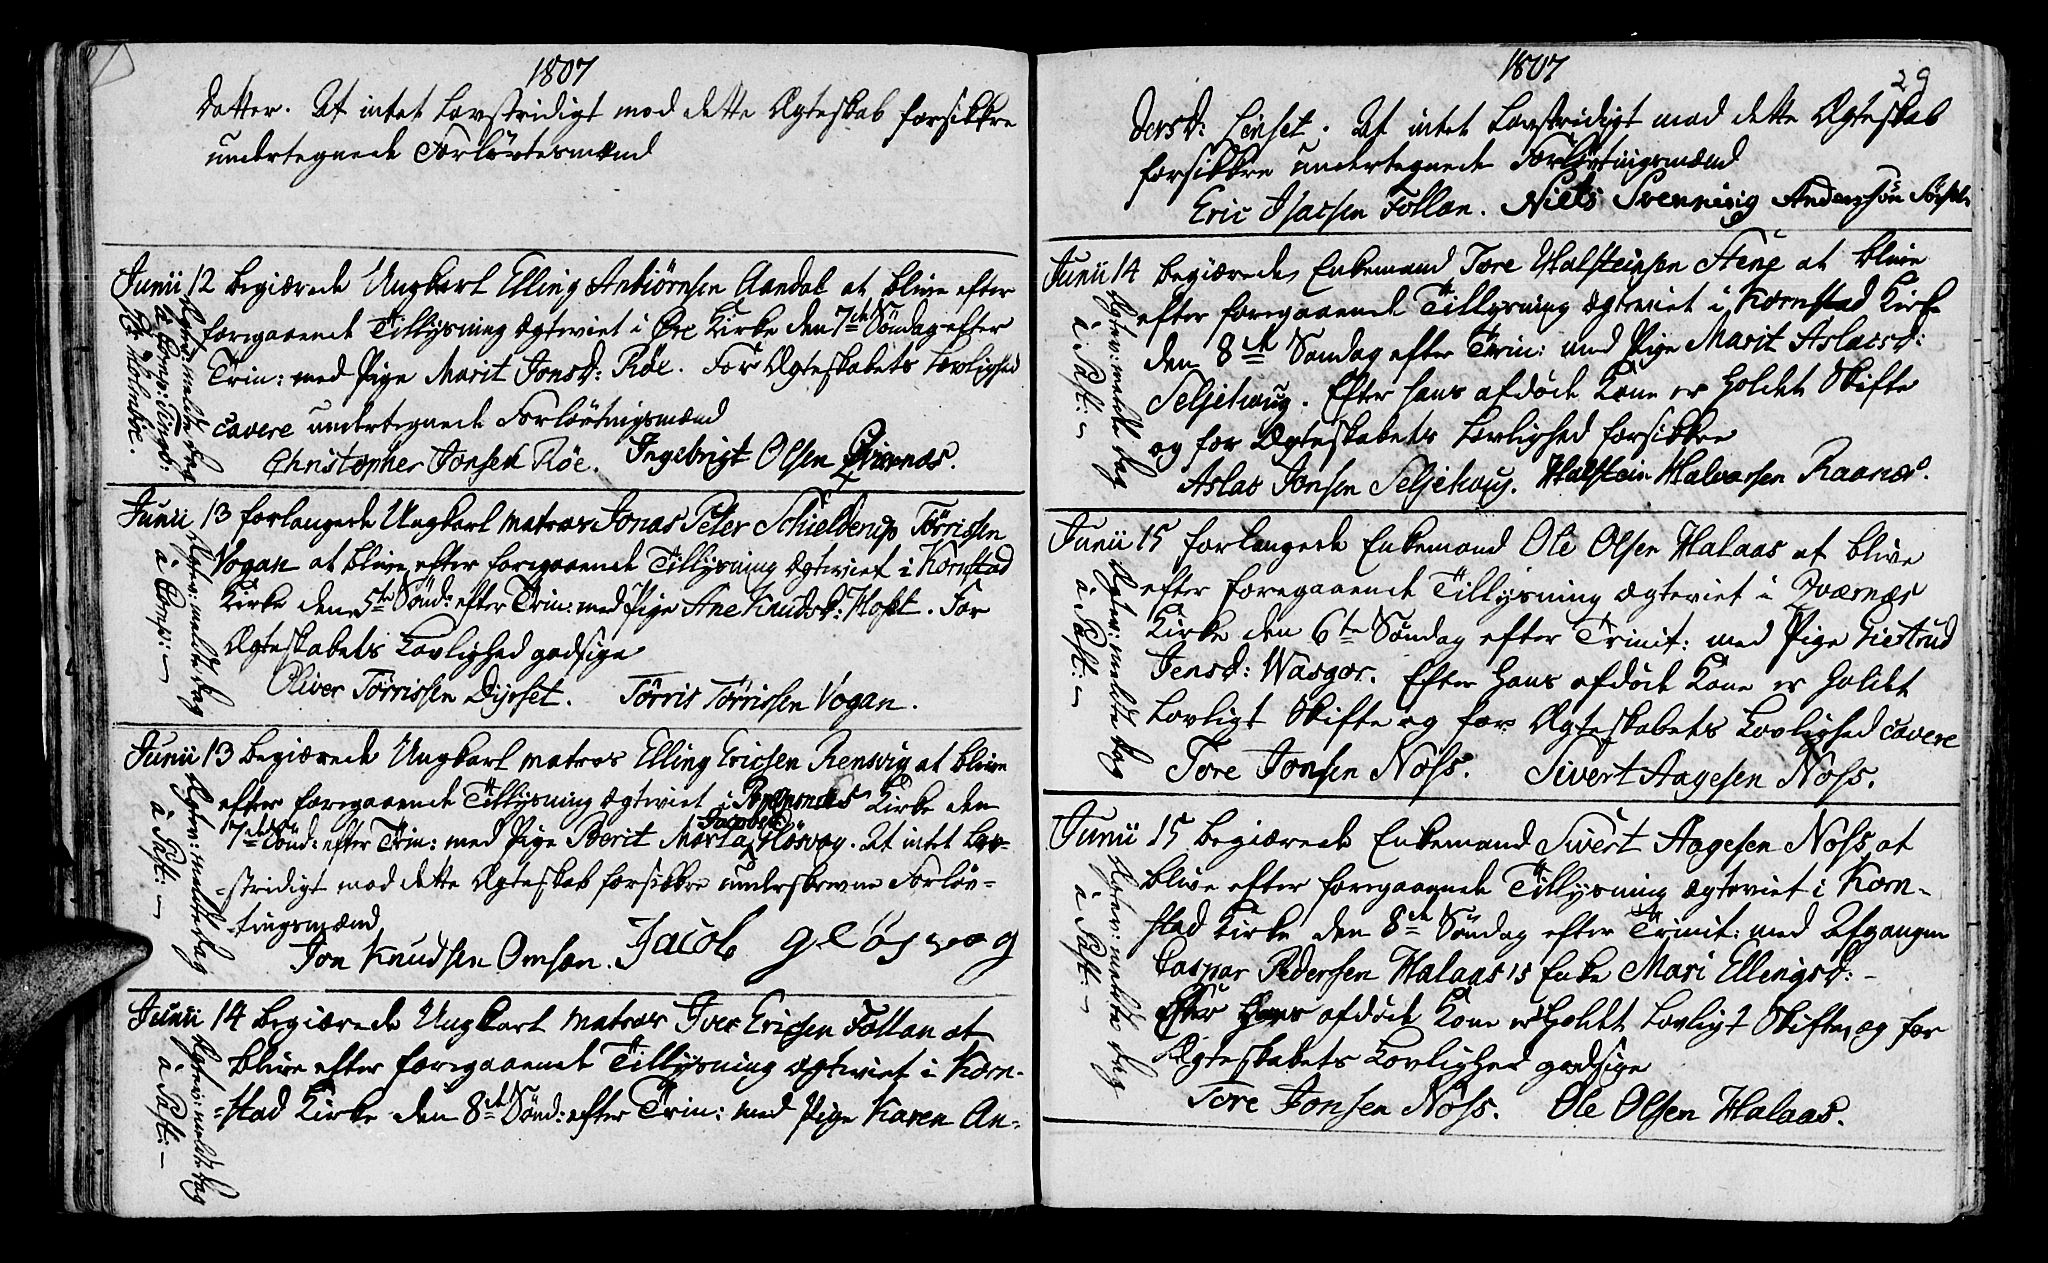 1807
datter. At intet Lovstridigt mod dette Ægteskab forsikkre
undertegnede Forlovtesmænd
Junii 12 begiærede Ungkarl Elling Anbiørnsen Aandal at blive efter
foregaaende Tillysning ægteviet i Øre Kirke den 7de Søndag efter
Trin: med Pige Marit Jonsd: Røe. For Ægteskabets Lovlighed
cavere undertegnede Forlovtningsmænd
Christopher Jonsen Røe. Ingebrigt Olsen
Ægtev: meldte dag
Junii 13 forlangede Ungkarl matros Jonas Peter Schielderup Tørrissen
Vogan at blive efter foregaaende Tillysning ægteviet i Kornstad
Kirke den 5te Sønd: efter Trin: med Pige Ane Knudsd: Hoft. For
Ægteskabets Lovlighed godsige
Oliver Tørrissen Dyrset. Tørris Tørrissen Vogan.
Ægtev: meldte dag
Junii 13 begiærede Ungkarl matros Elling Ericsen Rensvig at blive
efter foregaaende Tillysning ægteviet i Kirke den
7de Sønd: efter Trin: med Pige Berit Marta Jacobsd: Løsvog. At intet Lov-
-stridigt mod dette Ægteskab forsikkre underskrevne Forløv-
-tingsmænd
Jon Knudsen Omsan. Jacob
Ægtev: meldte dag
à Past: –
Junii 14 begiærede Ungkarl matros Iver Ericsen Follan at
blive efter foregaaende Tillysning ægteviet i Korn-
-stad Kirke den 8de Sønd: efter Trin: med Pige Karen An-
Ægtev: meldte dag
à Past: –
1807
29
dersd: Linset. At intet Lovstridigt mod dette Ægteskab
forsikkre undertegnede Forlovtingsmænd
Eric Isacsen Follan. Niels Svenning Anderssøn
Junii 14 begiærede Enkemand Tore Halsteinsen Stene at blive
efter foregaaende Tillysning ægteviet i Kornstad Kirke
den 8de Søndag efter Trin: med Pige Marit Aslacsd:
Seljehoug. Efter hans afdøde Kone er holdt Skifte
og for Ægteskabets Lovlighed forsikkre
Aslac Jonsen Seljehoug. Halstein Halvorsen Raanes.
Ægtev: meldte dag
à Past: –
Junii 15 forlangede Enkemand Ole Olsen Halaas at blive
efter foregaaende Tillysning ægteviet i Qværnæs
Kirke den 6te Søndag efter Trinit: med Pige Giertrud
Jensd: Wasgor. Efter hans afdøde Kone er holdt
Lovligt Skifte og for Ægteskabets Lovlighed cavere
Tore Jonsen Noss. Sivert Aagesen Noss.
Ægtev: meldte dag
à Past: –
Junii 15 begiærede Enkemand Sivert Aagesen Noss at
blive efter foregaaende Tillysning ægteviet i Korn-
stad Kirke den 8de Søndag efter Trinit: med Afgangen
Caspar Pedersen Halaas's Enke Mari Ellingsd: –
Efter Hans afdøde Kone er holdt Lovligt Skifte, og for
Ægteskabets Lovlighed godsige
Tore Jonsen Noss. Ole Olsen Halaas.
Ægtev: meldte dag
à Past: –